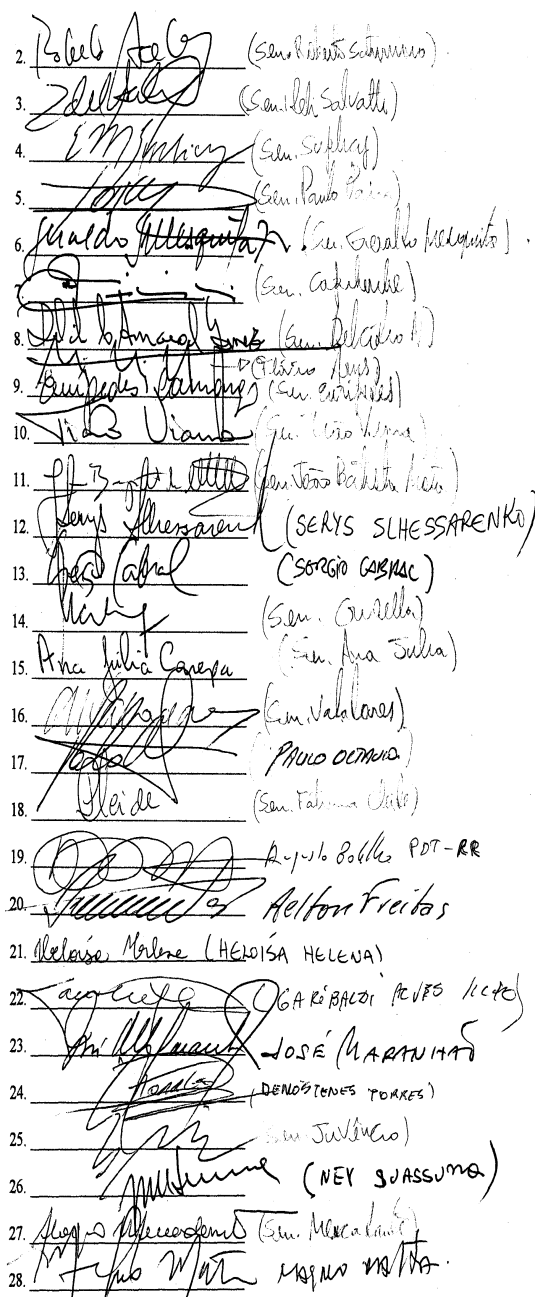 2. Roberto (Sen. Roberto Saturnino).
3. (Sen. Ideli Salvatti)
4. (Sen. Suplicy)
5. (Sen. Paulo Paim)
6. Geraldo Mesquita Jr. (Sen. Geraldo Mesquita).
7. (Sen. Capiberibe)
8. Delcídio Amaral (Sen. Delcídio A)
(Flávio Arns)
9. Eurípedes Camargo (Sen. Eurípedes)
10. Tião Viana (Sen. Tião Viana)
11. (Sen. João Batista Motta)
12. Serys Slhessarenko (SERYS SLHESSARENKO)
13. Sergio Cabral (SERGIO CABRAL)
14. (Sen. Ourella)
15. Ana Júlia Carepa (Sen. Ana Julia)
16. (Sen. Valadares)
17. (PAULO OCTAVIO)
18. (Sen. Fatima)
19. Augusto Botelho PDT-RR
20. Aelton Freitas
21. Heloísa Helena (HELOÍSA HELENA)
22. (GARIBALDI ALVES FILHO)
23. JOSÉ MARANHÃO
24. Torres (DEMÓSTENES TORRES)
25. (Sen. Juvêncio)
26. (NEY SUASSUNA)
27. Aloizio Mercadante (Sen. Mercadante)
28. Magno Malta MAGNO MALTA.